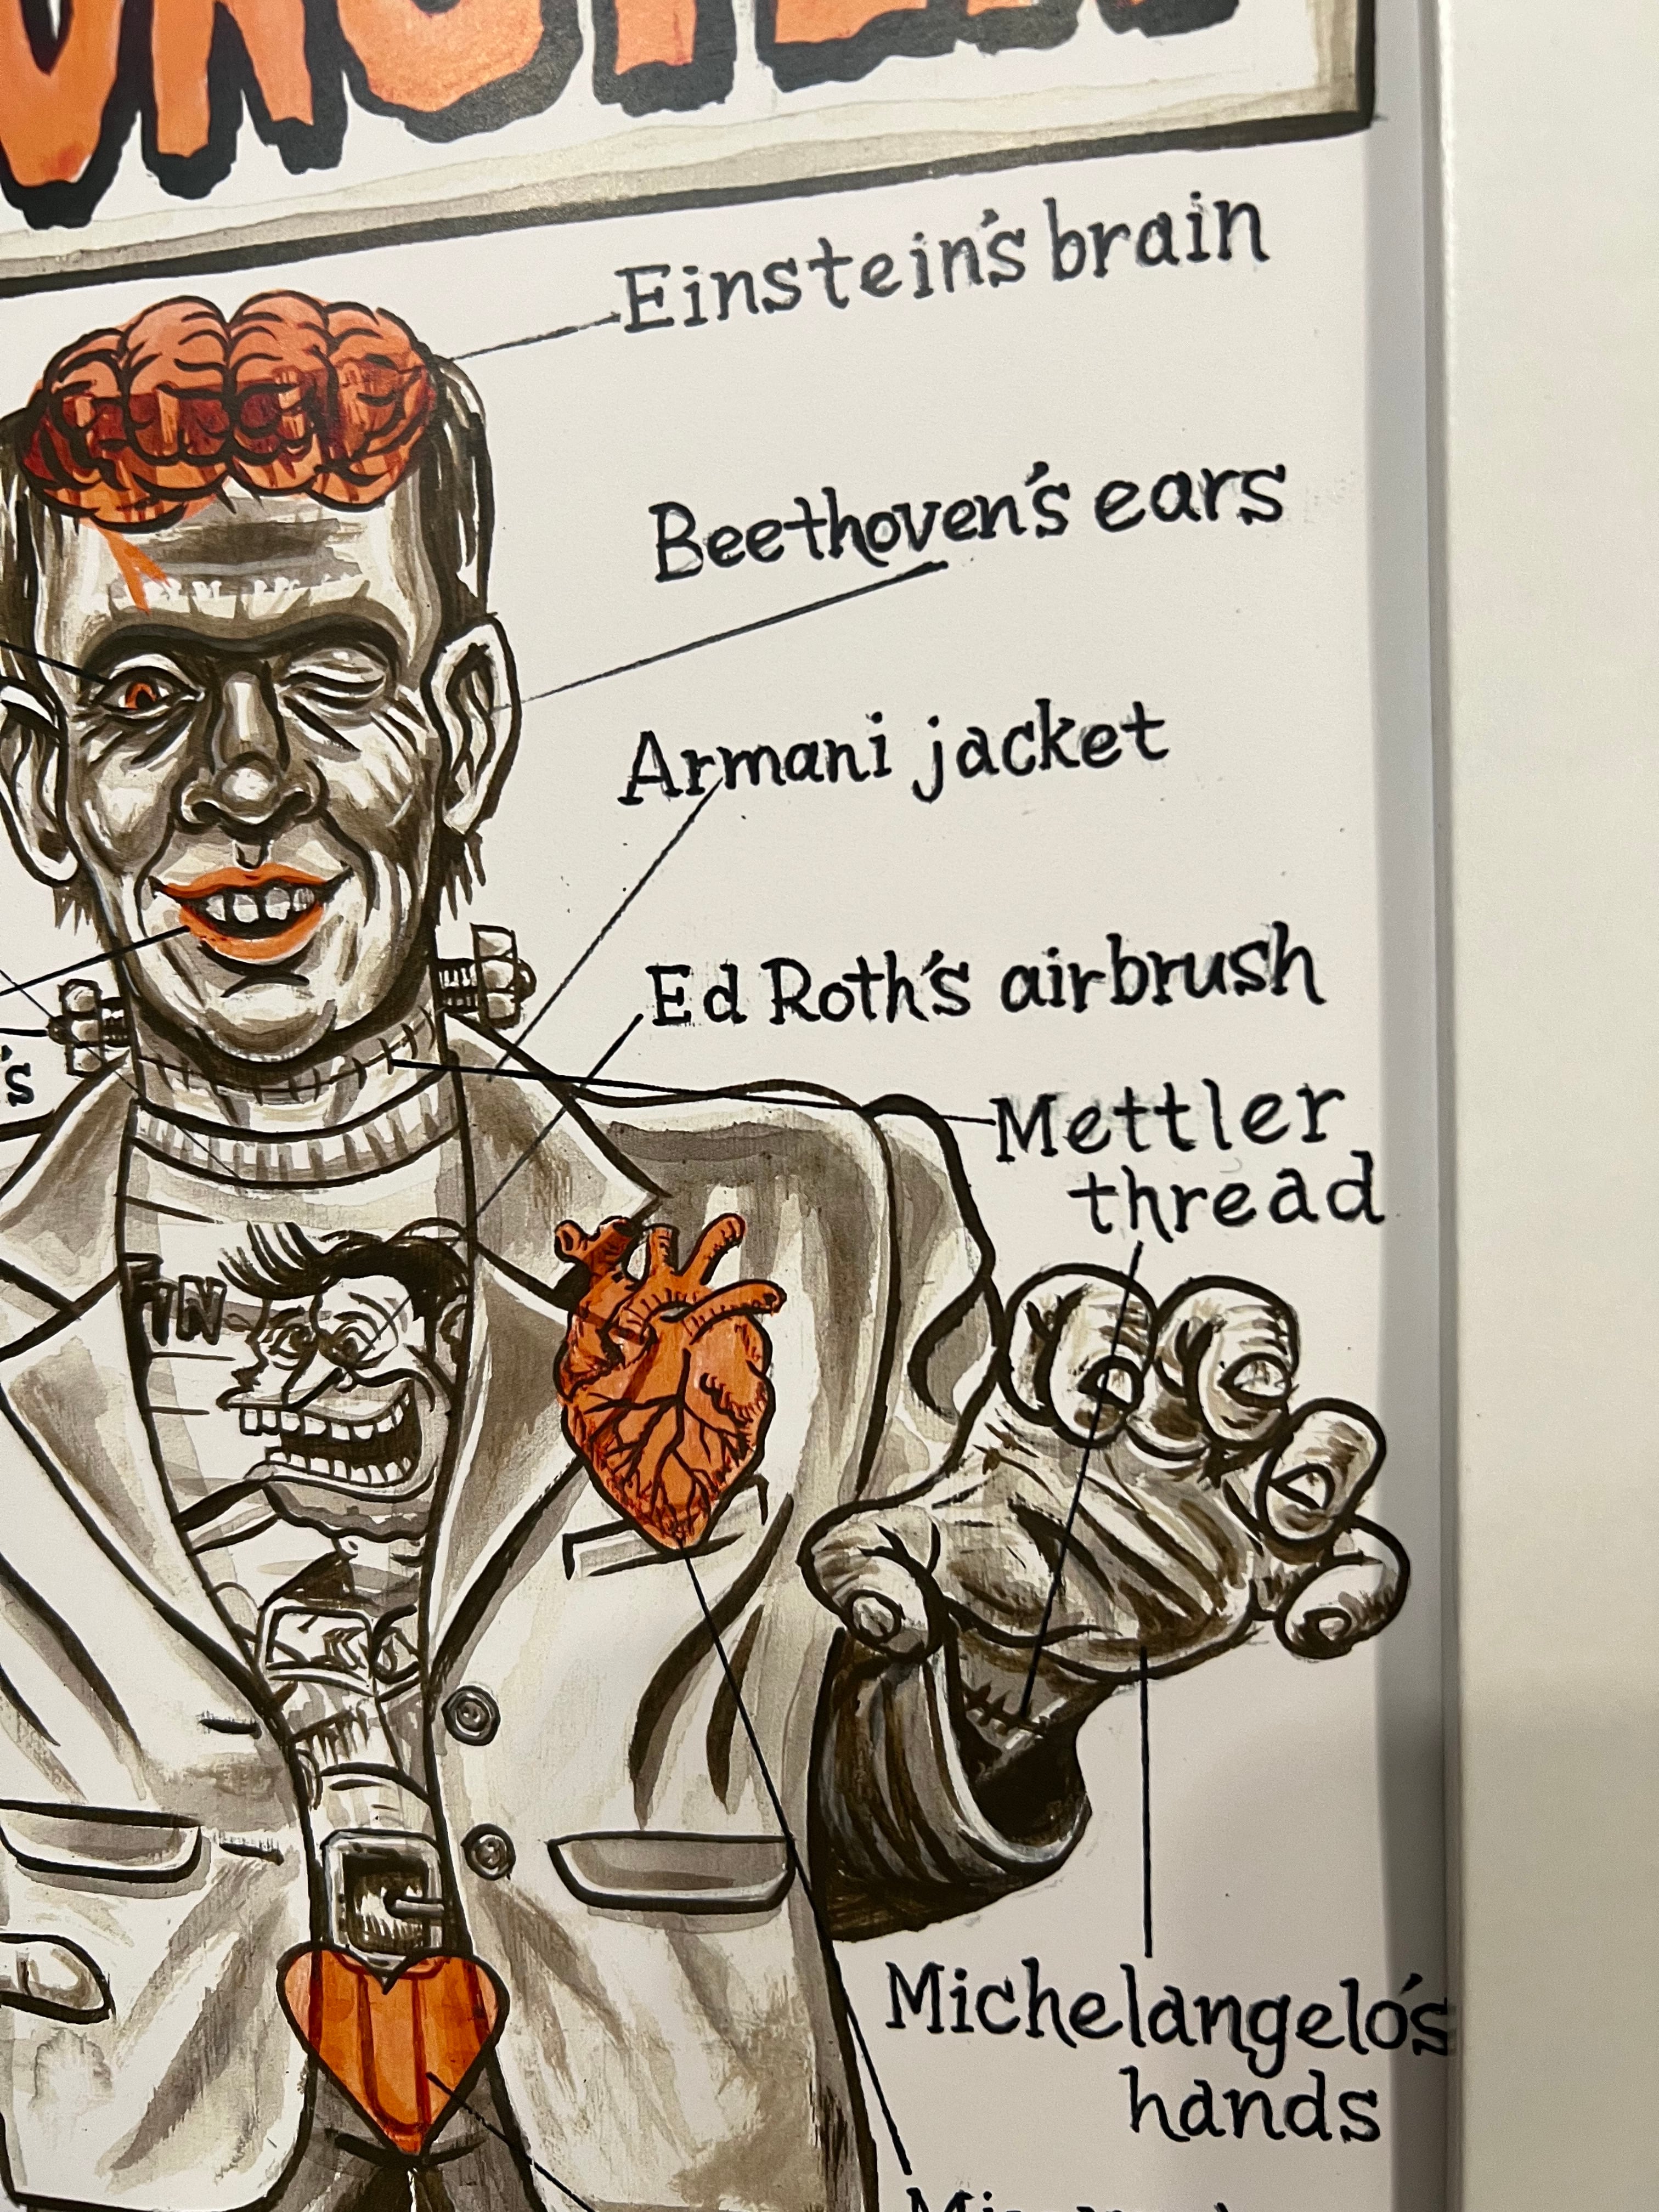 Einstein's brain
Beethoven's ears
Armani jacket
Ed Roth's airbrush
's
Mettler
thread
Michelangelo's
hands